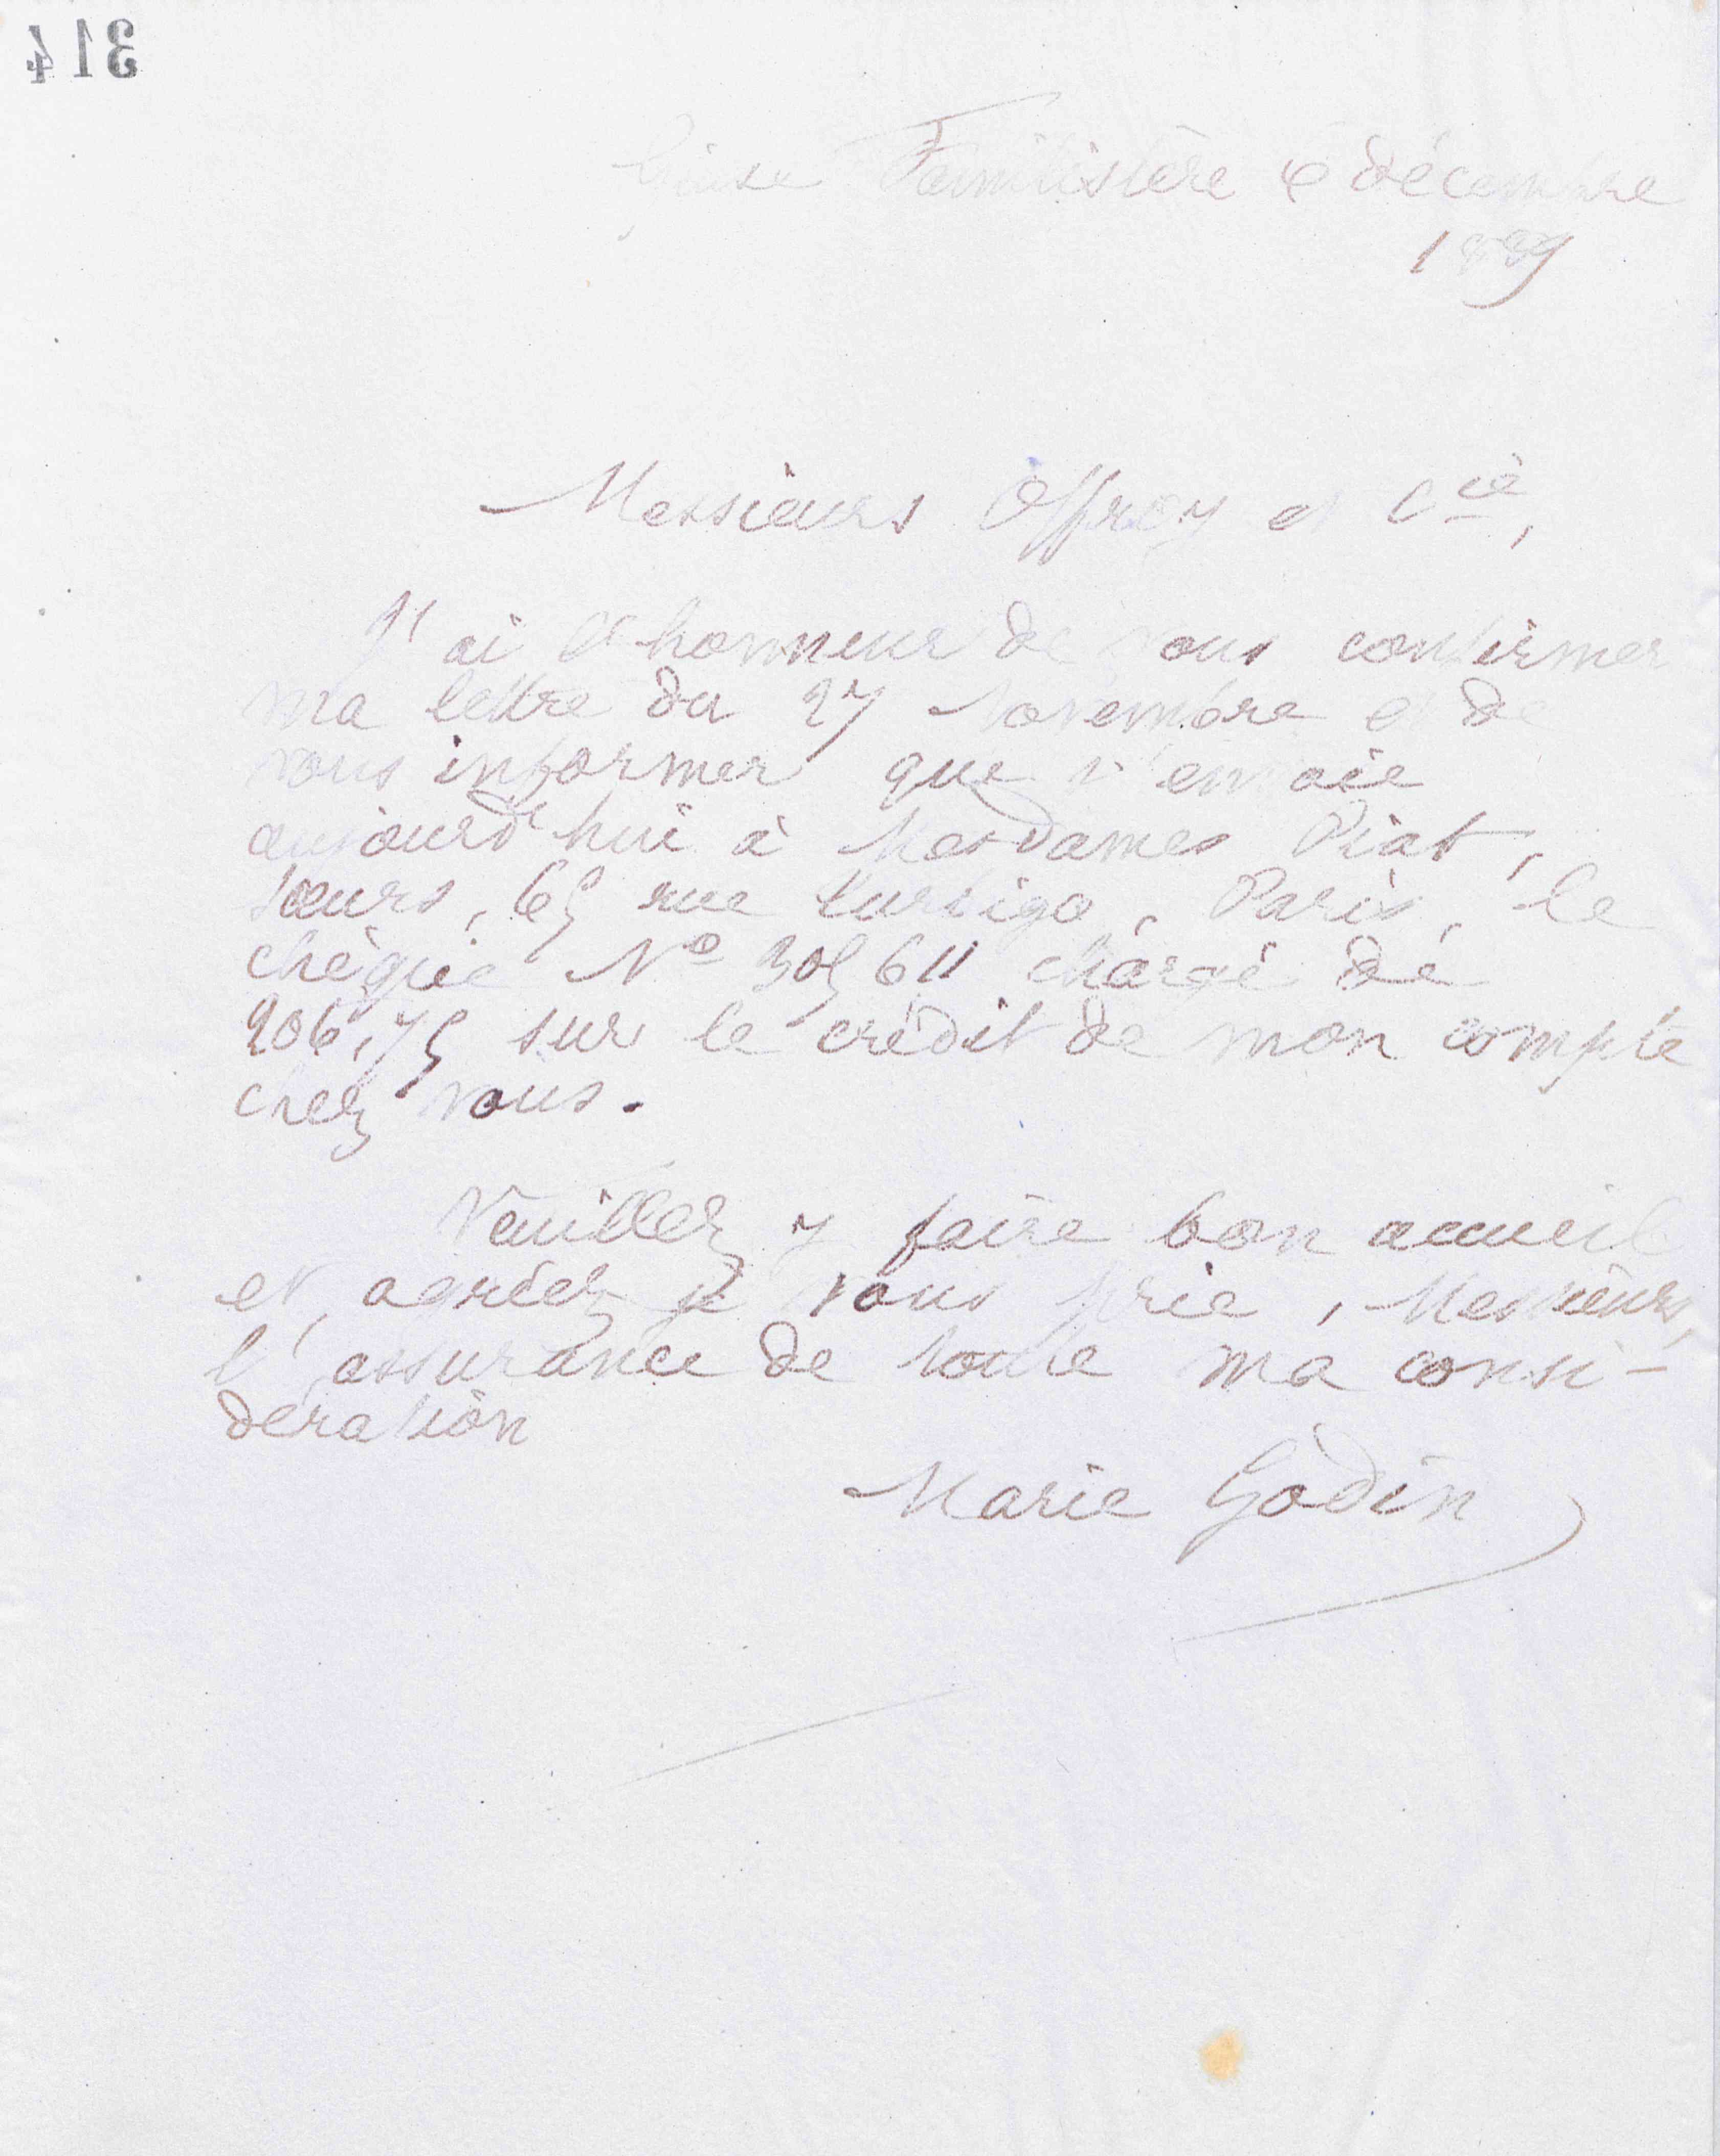 314
Guise Familistère 6 décembre
1889
Messieurs Offroy et Cie,
J'ai l'honneur de vous confirmer
ma lettre du 27 Novembre et de
vous informer que j'envoie
aujourd'hui à Mesdames Piat,
sœurs, 65 rue Turbigo, Paris, le
chèque No 305611 chargé de
206,75 sur le crédit de mon compte
chez vous.
Veuillez y faire bon accueil
et, agréez je vous prie, Messieurs,
l'assurance de toute ma consi-
dération
Marie Godin